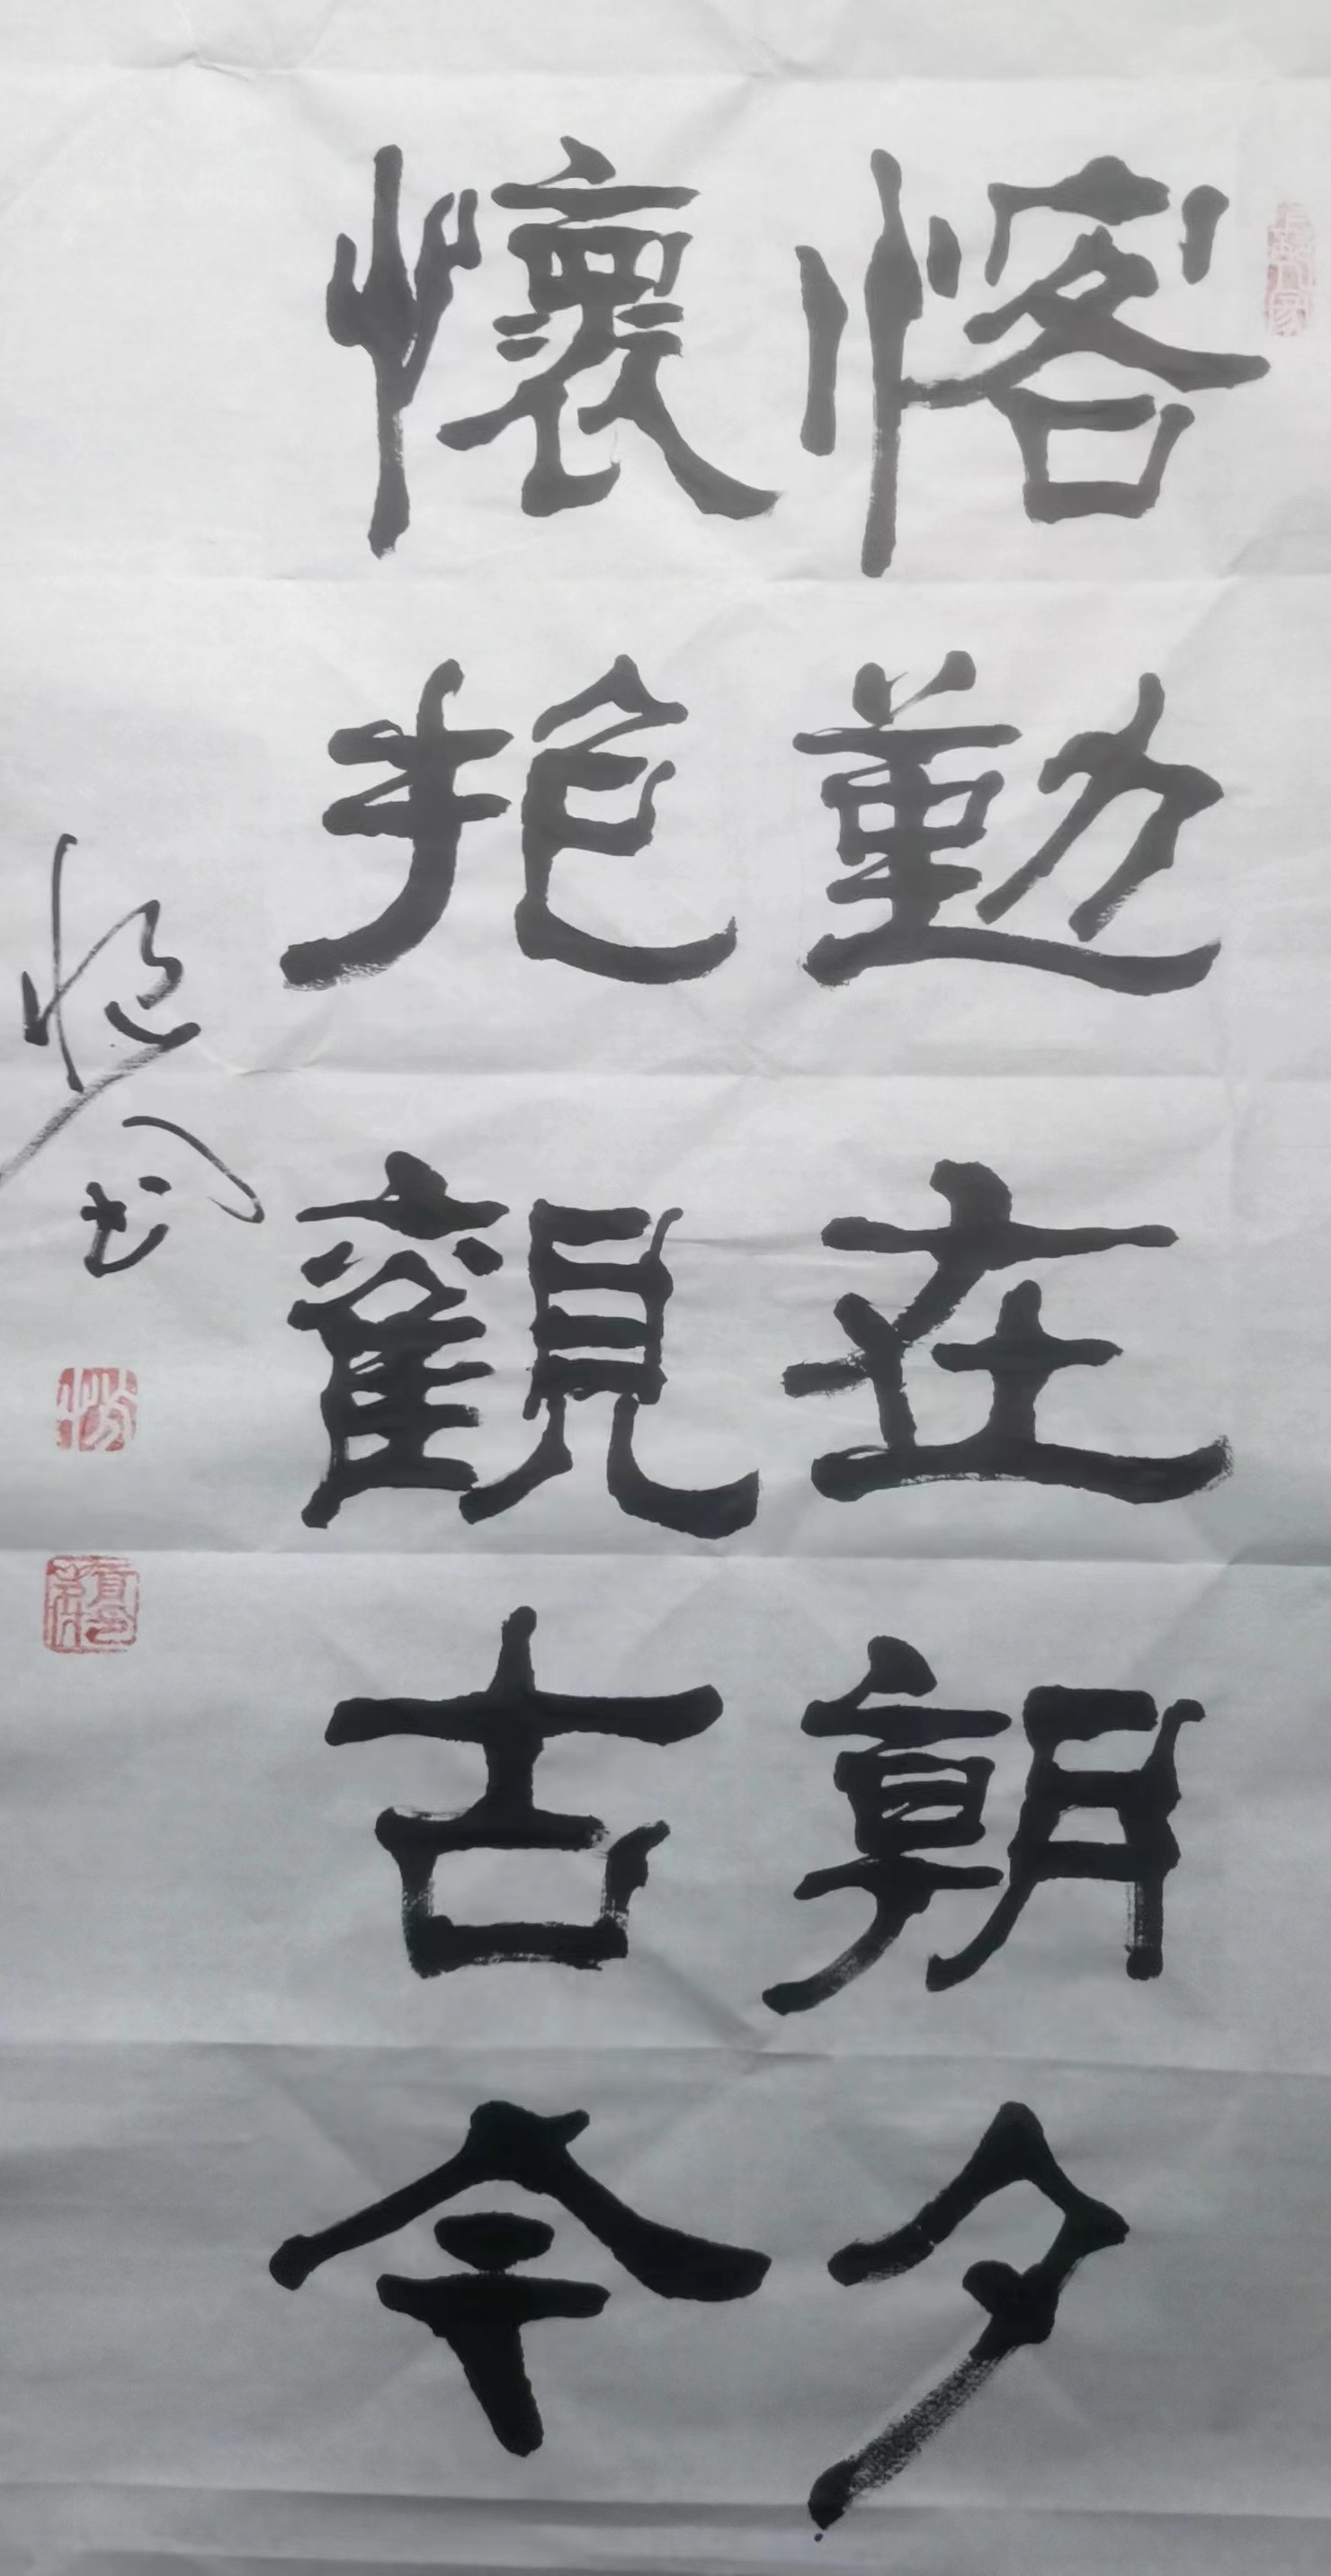 愙勤在朝夕
懷抱觀古今